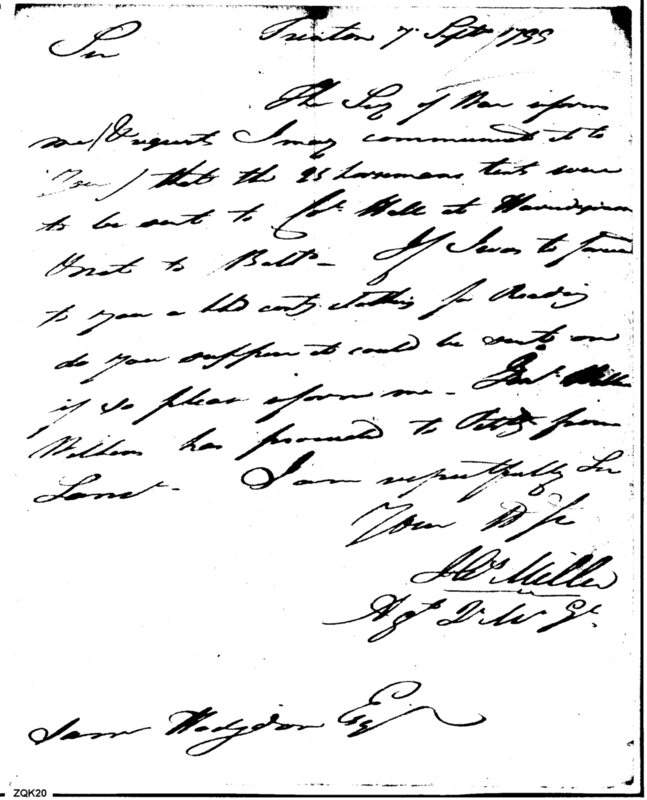 Trenton 7. Sept. 1799
Sir
The Sey of War informs
me (& requests I may communicate it to
You) that the 25 horsemans tents were
to be sent to Col. Hall at Havredegrace
& not to Balto - If I was to forward
to you a little clothing for Reading
do you suppose it could be sent on
if so please inform me - Genl.
Wilkins has proceeded to Pittsg from
Lanr. - I am respectfully Sir
Your Ob Se
Jno Miller
Agt. Q. M. Gl.
Saml Hodgdon Esq
ZQK20